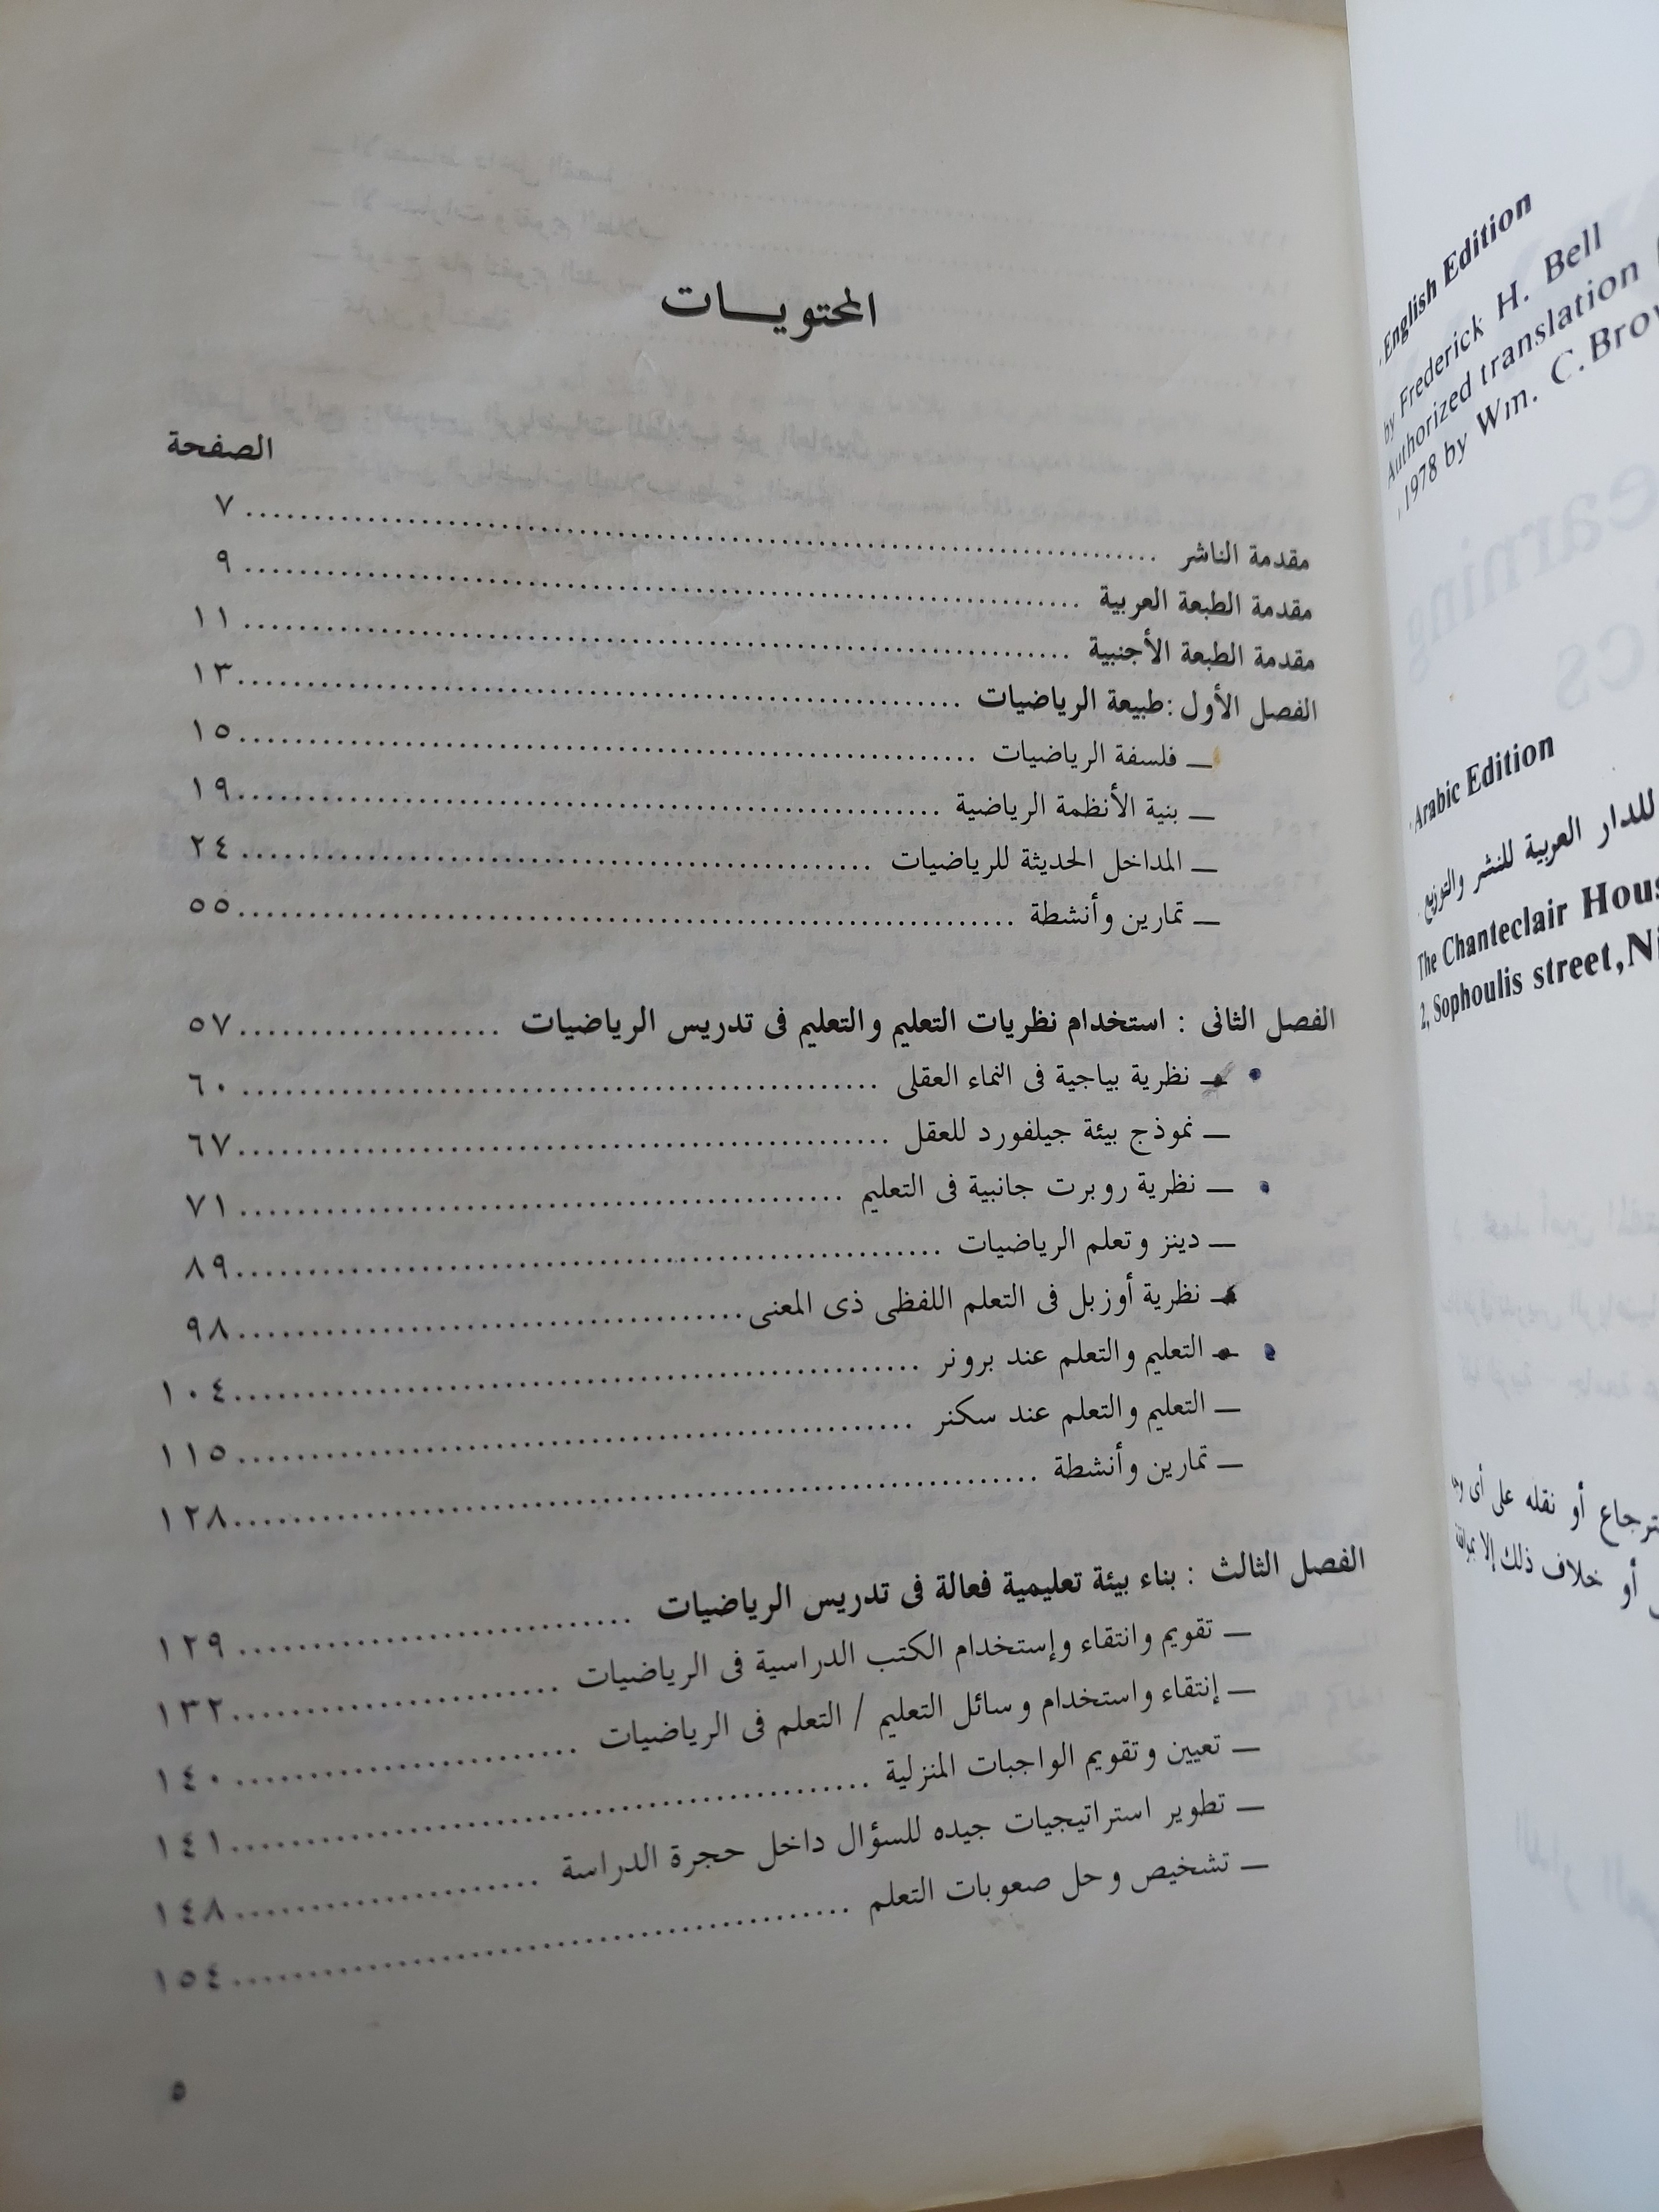 المحتويات
الصفحة
مقدمة الناشر ........ ٧
مقدمة الطبعة العربية ........ ٩
مقدمة الطبعة الأجنبية ........ ١١
الفصل الأول : طبيعة الرياضيات ........ ١٣
— فلسفة الرياضيات ........ ١٥
— بنية الأنظمة الرياضية ........ ١٩
— المداخل الحديثة للرياضيات ........ ٢٤
— تمارين وأنشطة ........ ٥٥
الفصل الثانى : استخدام نظريات التعليم والتعليم فى تدريس الرياضيات ........ ٥٧
— نظرية بياجية فى النماء العقلى ........ ٦٠
— نموذج بيئة جيلفورد للعقل ........ ٦٧
— نظرية روبرت جانبية فى التعليم ........ ٧١
— دينز وتعلم الرياضيات ........ ٨٩
— نظرية أوزبل فى التعلم اللفظى ذى المعنى ........ ٩٨
— التعليم والتعلم عند برونر ........ ١٠٤
— التعليم والتعلم عند سكنر ........ ١١٥
— تمارين وأنشطة ........ ١٢٨
الفصل الثالث : بناء بيئة تعليمية فعالة فى تدريس الرياضيات ........ ١٢٩
— تقويم وانتقاء وإستخدام الكتب الدراسية فى الرياضيات ........ ١٣٢
— إنتقاء واستخدام وسائل التعليم / التعلم فى الرياضيات ........ ١٤٠
— تعيين وتقويم الواجبات المنزلية ........ ١٤١
— تطوير استراتيجيات جيده للسؤال داخل حجرة الدراسة ........ ١٤٨
— تشخيص وحل صعوبات التعلم ........ ١٥٤
٥
English Edition
by Frederick H. Bell
Authorized translation
1978 by Wm. C.
Arabic Edition
للدار العربية للنشر والتوزيع
The Chanteclair
2, Sophoulis street,
أو نقله على أى
أو خلاف ذلك إلا